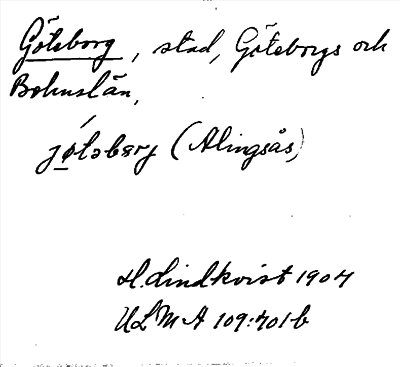 Göteborg, stad, Göteborgs och
Bohuslän,
jøtəbərj (Alingsås)
H. Lindkvist 1904
ULMA 109:401b